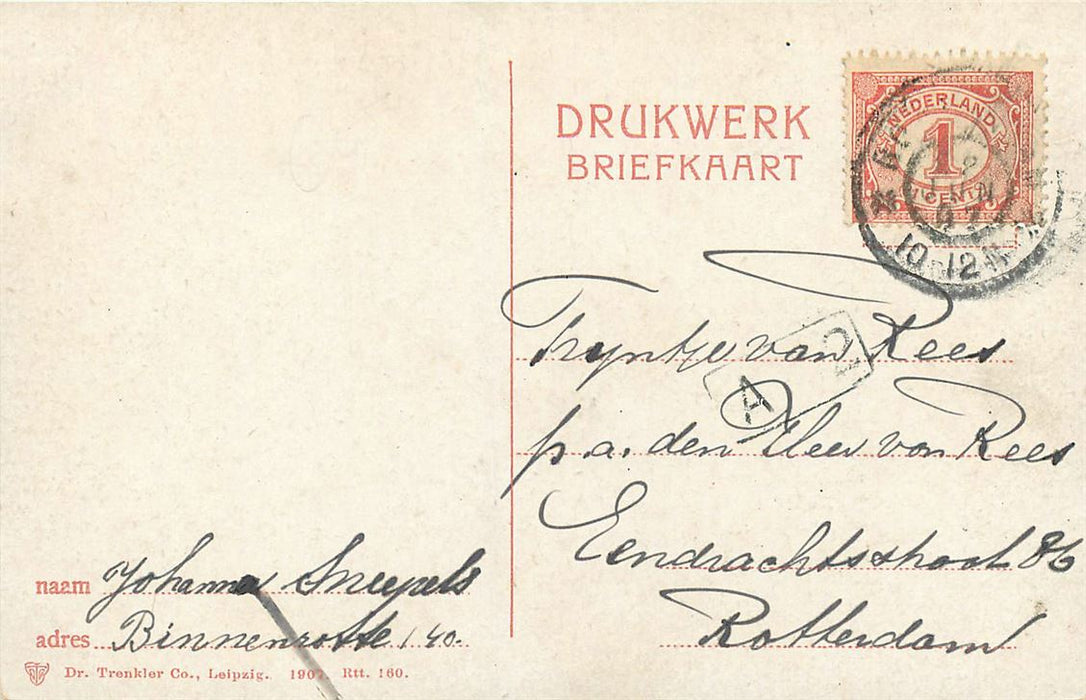 DRUKWERK
BRIEFKAART
NEDERLAND
1
CENT
10-12
Tryntje van Rees
A
p.a. den Heer van Rees
Eendrachtsstraat 86
Rotterdam
naam Johanna
adres Binnenrotte 140.
Dr. Trenkler Co., Leipzig. 1907. Rtt. 160.